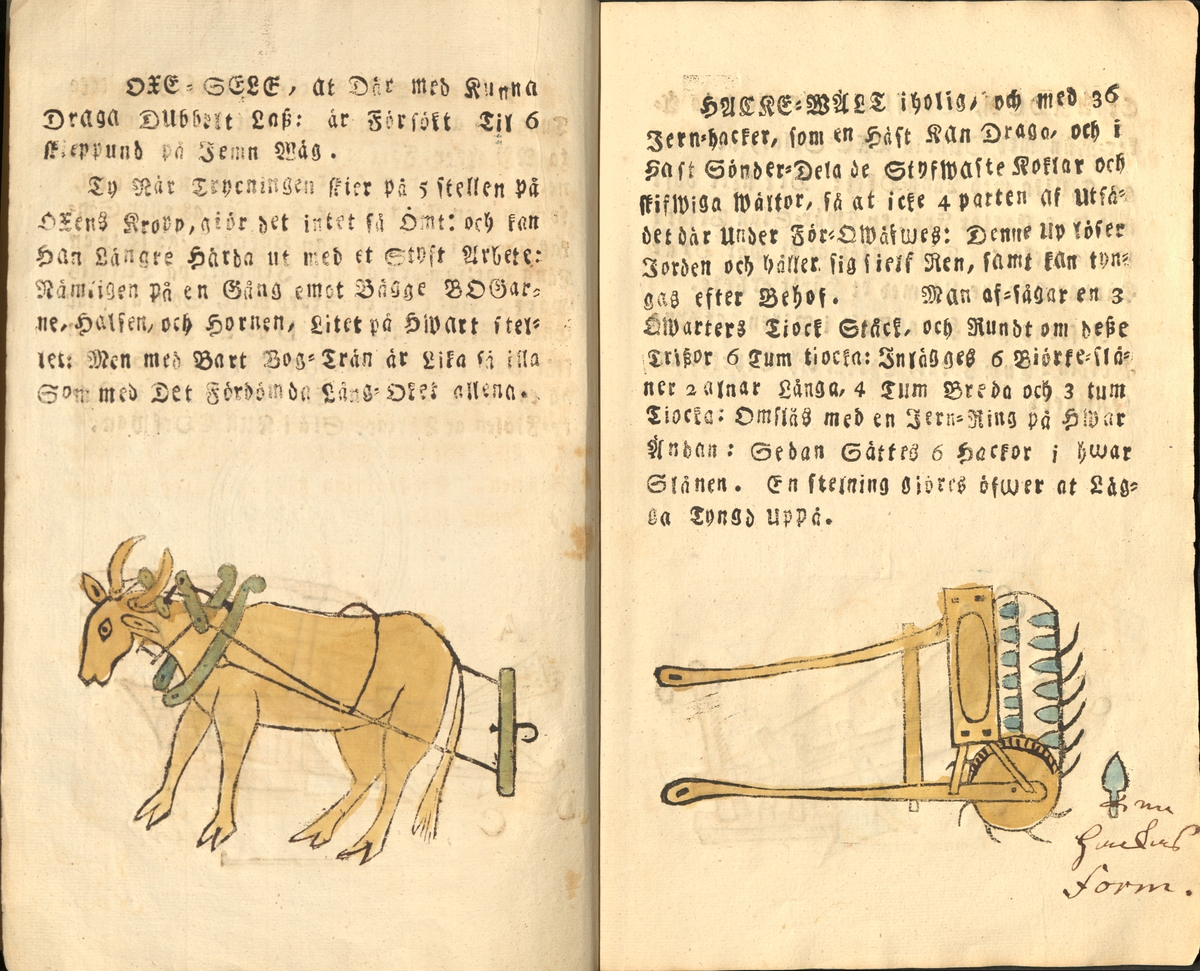 OXE-SELE, at Där med Kunna
Draga Dubbelt Laß: är Försökt Til 6
skeppund på Jemn Wäg.
Ty När Tryckningen skier på 5 stellen på
OXens Kropp, giör det intet så Ömt: och kan
Han Längre Härda ut med et Styft Arbete:
Nämligen på en Gång emot Bägge BOGar-
ne, Halsen, och Hornen, Litet på Hwart stel-
let: Men med Bart Bog-Trän är Lika så illa
Som med Det Fördömda Lång-Oket allena.
HACKE-WÄLT iholig, och med 36
Jern-hacker, som en Häst Kan Draga, och i
Hast Sönder-Dela de Styfwaste Koklar och
skifwiga Wältor, så at icke 4 parten af Utsä-
det där Under För-Qwäfwes: Denne Up löser
Jorden och håller sig sielf Ren, samt kan tyn-
gas efter Behof. Man af-sågar en 3
Qwarters Tiock Ståck, och Rundt om deße
Trißor 6 Tum tiocka: Inlägges 6 Biörke-slä-
ner 2 alnar Långa, 4 Tum Breda och 3 tum
Tiocka: Omslås med en Jern-Ring på Hwar
Ändan: Sedan Sättes 6 Hackor i hwar
Slånen. En stelning giöres öfwer at Läg-
ga Tyngd uppå.
Form.